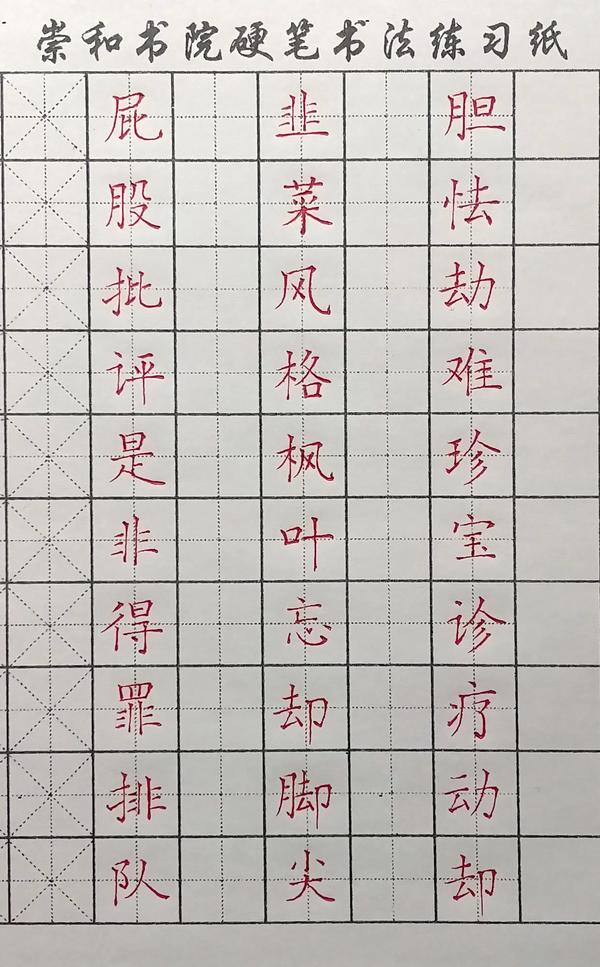 崇和书院硬笔书法练习纸
屁股批评是非得罪排队
韭菜风格枫叶忘却脚尖
胆怯劫难珍宝诊疗动却